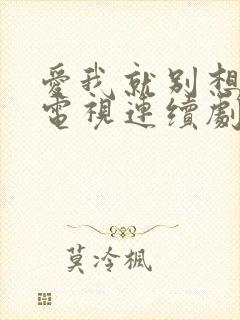 愛我就別想
電視連續劇
莫冷楓